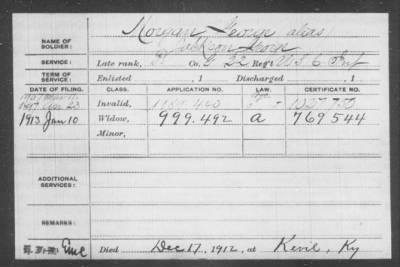 NAME OF SOLDIER: George alias
Jackson George
SERVICE: Late rank, Co. G 22 Reg't U S C Inf
TERM OF SERVICE: Enlisted , 1 Discharged , 1
DATE OF FILING. CLASS. APPLICATION NO. LAW. CERTIFICATE NO.
Invalid,
1913 Jan 10 Widow, 999.492 a 769544
Minor,
ADDITIONAL SERVICES:
REMARKS:
Died Dec 17, 1912, at Kevil, Ky